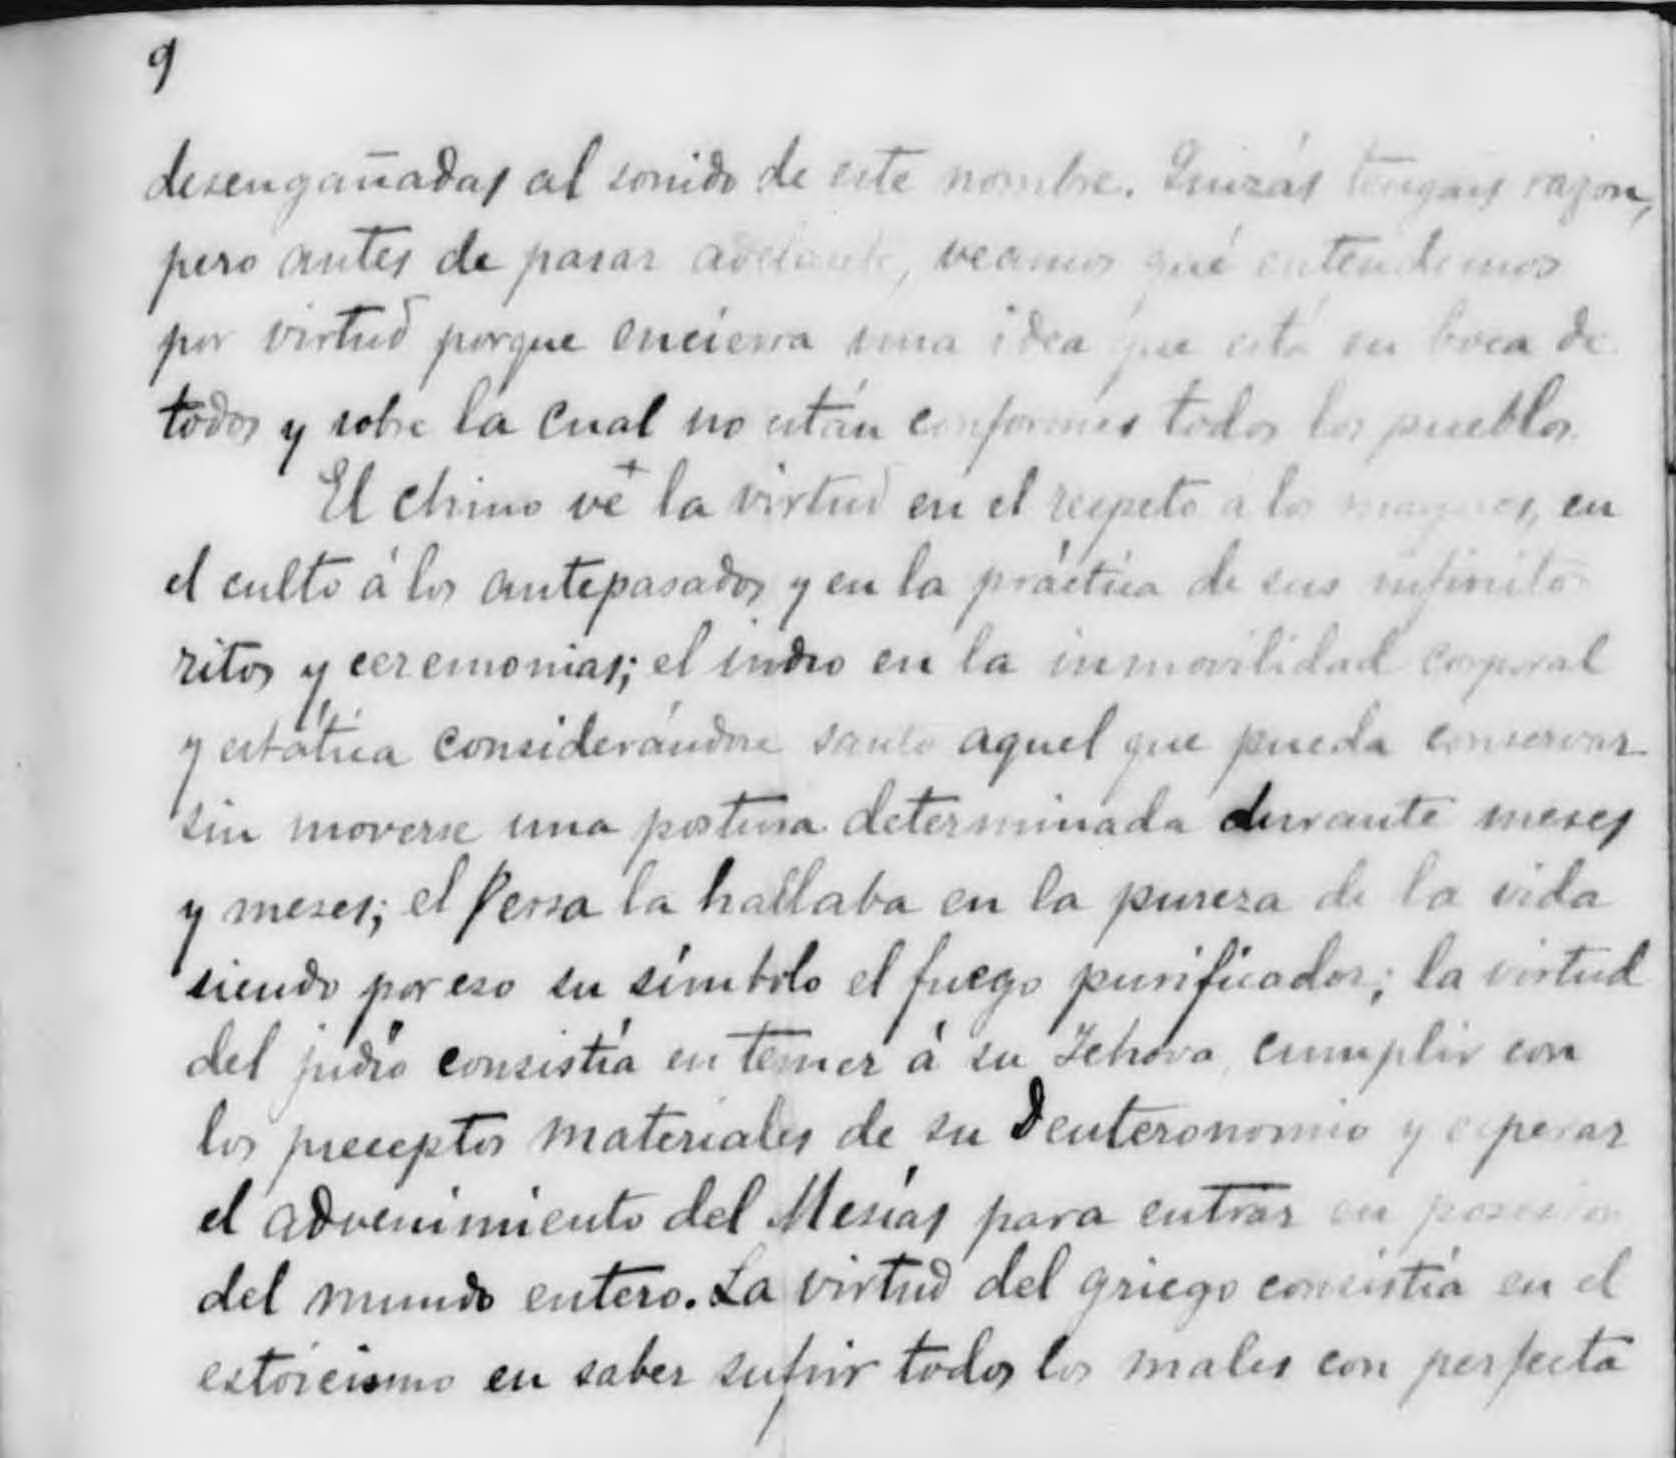 9
desengañadas al sonido de este nombre. Quizás tengais razon,
pero antes de pasar adelante, veamos qué entendemos
por virtud porque encierra una idea que está en boca de
todos y sobre la cual no están conformes todos los pueblos.
El chino vé la virtud en el respeto á los mayores, en
el culto á los antepasados y en la práctica de sus infinitos
ritos y ceremonias; el indio en la inmovilidad corporal
y estática considerándose santo aquel que pueda conservar
sin moverse una postura determinada durante meses
y meses; el Persa la hallaba en la pureza de la vida
siendo por eso su símbolo el fuego purificador; la virtud
del judío consistía en temer á su Jehova, cumplir con
los preceptos materiales de su Deuteronomio y esperar
el advenimiento del Mesías para entrar en posesion
del mundo entero. La virtud del griego consistía en el
estoicismo en saber sufrir todos los males con perfecta